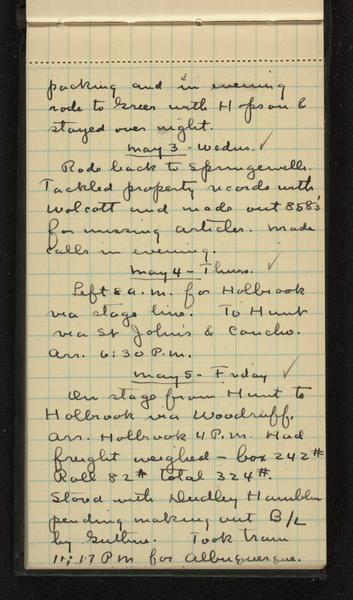 packing and in evening
rode to Greer with Hopson &
stayed over night.
May 3 - Wednes. ✓
Rode back to Springerville.
Tackled property records with
Wolcott and made out 858s'
for missing articles. Made
calls in evening.
May 4 - Thurs. ✓
Left 8 a.m. for Holbrook
via stage line. To Hunt
via St John's & Concho.
Arr. 6:30 P.M.
May 5 - Friday ✓
On stage from Hunt to
Holbrook via Woodruff.
Arr. Holbrook 4 P.M. Had
freight weighed - box 242#
Roll 82# total 324#.
Stored with Dudley Hamblin
pending making out B/L
by Guthrie. Took train
11:17 PM for Albuquerque.